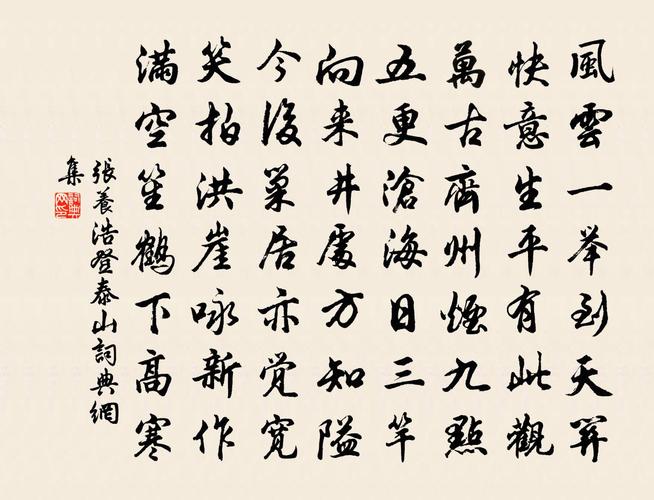 風雲一举到天關
快意生平有此觀
萬古齊州煙九點
五更滄海日三竿
向来井處方知隘
今後巢居亦觉宽
笑拍洪崖咏新作
满空笙鶴下高寒
張養浩登泰山詞典網
集